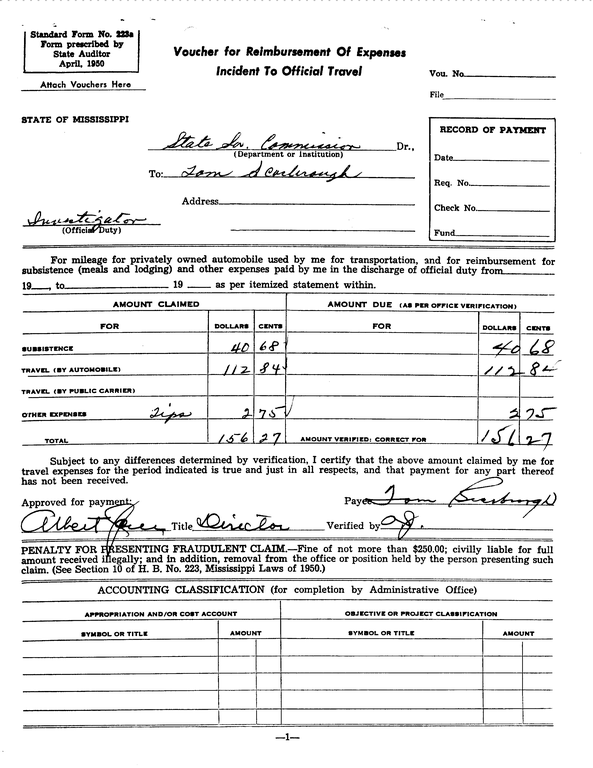 Standard Form No. 223a
Form prescribed by
State Auditor
April, 1950
Attach Vouchers Here
Voucher for Reimbursement Of Expenses
Incident To Official Travel
Vou. No.
File
STATE OF MISSISSIPPI
State Sov. Commission Dr.,
(Department or Institution)
To: Tom Scarbrough
Address
Investigator
(Official Duty)
RECORD OF PAYMENT
Date
Req. No.
Check No.
Fund
For mileage for privately owned automobile used by me for transportation, and for reimbursement for
subsistence (meals and lodging) and other expenses paid by me in the discharge of official duty from
19 , to 19 as per itemized statement within.
AMOUNT CLAIMED AMOUNT DUE (AS PER OFFICE VERIFICATION)
FOR DOLLARS CENTS FOR DOLLARS CENTS
SUBSISTENCE 40 68 40 68
TRAVEL (BY AUTOMOBILE) 112 84 112 84
TRAVEL (BY PUBLIC CARRIER)
OTHER EXPENSES Tips 2 75 2 75
TOTAL 156 27 AMOUNT VERIFIED: CORRECT FOR 156 27
Subject to any differences determined by verification, I certify that the above amount claimed by me for
travel expenses for the period indicated is true and just in all respects, and that payment for any part thereof
has not been received.
Approved for payment: Payee Tom Scarbrough
Albert Jones Title Director Verified by
PENALTY FOR PRESENTING FRAUDULENT CLAIM.—Fine of not more than $250.00; civilly liable for full
amount received illegally; and in addition, removal from the office or position held by the person presenting such
claim. (See Section 10 of H. B. No. 223, Mississippi Laws of 1950.)
ACCOUNTING CLASSIFICATION (for completion by Administrative Office)
APPROPRIATION AND/OR COST ACCOUNT OBJECTIVE OR PROJECT CLASSIFICATION
SYMBOL OR TITLE AMOUNT SYMBOL OR TITLE AMOUNT
—1—